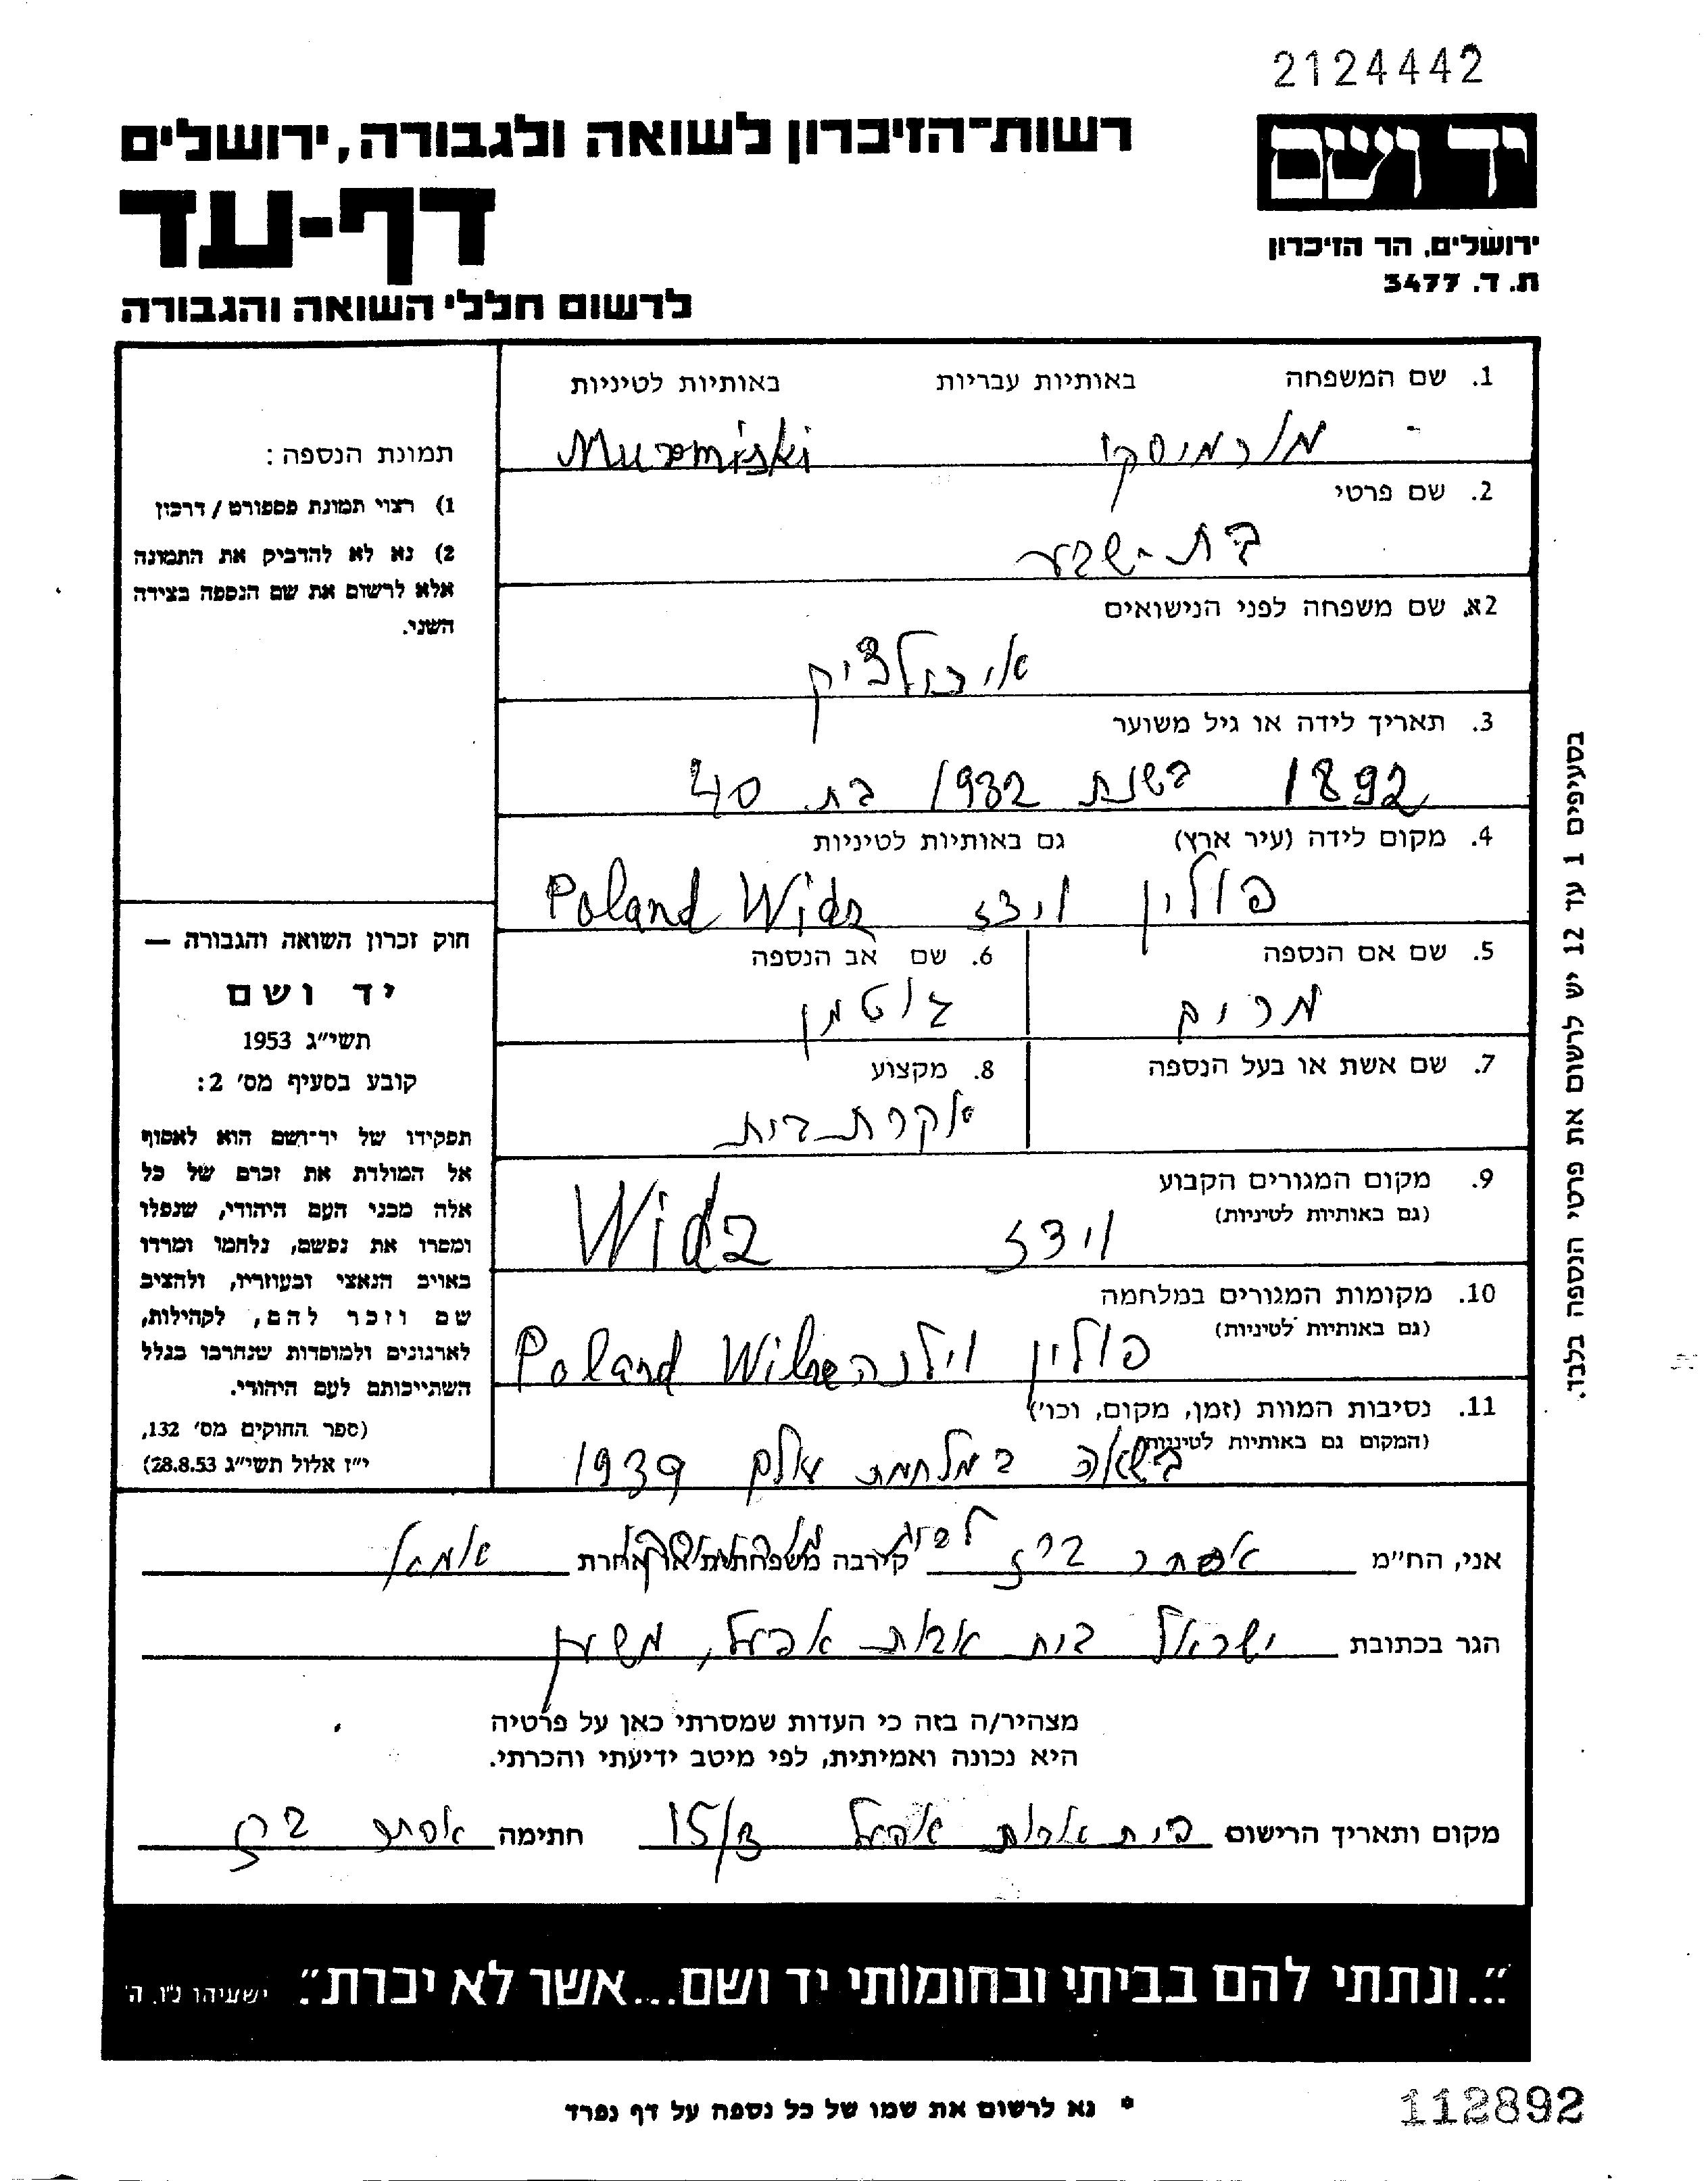 2124442
יד ושם
ירושלים, הר הזיכרון
ת. ד. 3477
רשות-הזיכרון לשואה ולגבורה, ירושלים
דף-עד
לרשום חללי השואה והגבורה
1. שם המשפחה באותיות עבריות באותיות לטיניות
מורמיסקי Muromiski
2. שם פרטי
בת-שבע
2א. שם משפחה לפני הנישואים
3. תאריך לידה או גיל משוער
1892 בשנת 1932 בת 40
4. מקום לידה (עיר ארץ) גם באותיות לטיניות
פולין וידז Poland Widz
5. שם אם הנספה
מרים
6. שם אב הנספה
גוטמן
7. שם אשת או בעל הנספה
8. מקצוע
אקרת בית
9. מקום המגורים הקבוע
(גם באותיות לטיניות)
וידז Widz
10. מקומות המגורים במלחמה
(גם באותיות לטיניות)
פולין וילנה Poland Wilno
11. נסיבות המוות (זמן, מקום, וכו')
(המקום גם באותיות לטיניות)
בשואה במלחמת עולם 1939
תמונת הנספה:
1) רצוי תמונת פספורט / דרכון
2) נא לא להדביק את התמונה
אלא לרשום את שם הנספה בצידה
השני.
חוק זכרון השואה והגבורה —
יד ושם
תשי״ג 1953
קובע בסעיף מס׳ 2:
תפקידו של יד-ושם הוא לאסוף
אל המולדת את זכרם של כל
אלה מבני העם היהודי, שנפלו
ומסרו את נפשם, נלחמו ומרדו
באויב הנאצי ובעוזריו, ולהציב
שם וזכר להם, לקהילות,
לארגונים ולמוסדות שנחרבו בגלל
השתייכותם לעם היהודי.
(ספר החוקים מס׳ 132,
י״ז אלול תשי״ג 28.8.53)
בסעיפים 1 עד 12 יש לרשום את פרטי הנספה בלבד.
אני, הח״מ אסתר ברז קירבה משפחתית או אחרת
הגר בכתובת ישראל בית אבות אפעל, משען
מצהיר/ה בזה כי העדות שמסרתי כאן על פרטיה
היא נכונה ואמיתית, לפי מיטב ידיעתי והכרתי.
מקום ותאריך הרישום בית אבות אפעל 15/3 חתימה אסתר ברז
״...ונתתי להם בביתי ובחומותי יד ושם...אשר לא יכרת״. ישעיהו נ״ו, ה׳
* נא לרשום את שמו של כל נספה על דף נפרד
112892